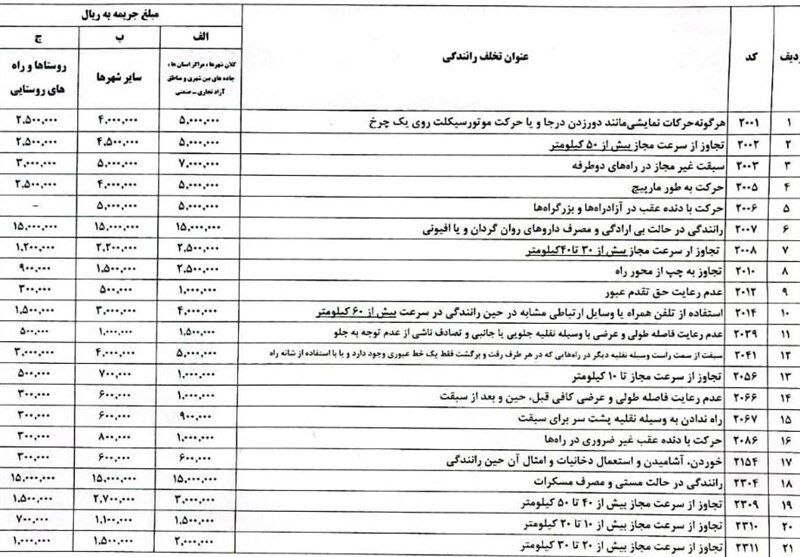 ردیف کد عنوان تخلف رانندگی مبلغ جریمه به ریال
الف ب ج
کلان شهرها، مراکز استان ها، جاده های بین شهری و مناطق آزاد تجاری – صنعتی سایر شهرها روستاها و راه های روستایی
۱ ۲۰۰۱ هرگونه حرکات نمایشی مانند دورزدن درجا و یا حرکت موتورسیکلت روی یک چرخ ۵,۰۰۰,۰۰۰ ۴,۰۰۰,۰۰۰ ۲,۵۰۰,۰۰۰
۲ ۲۰۰۲ تجاوز از سرعت مجاز بیش از ۵۰ کیلومتر ۵,۰۰۰,۰۰۰ ۴,۵۰۰,۰۰۰ ۲,۵۰۰,۰۰۰
۳ ۲۰۰۳ سبقت غیر مجاز در راه‌های دوطرفه ۷,۰۰۰,۰۰۰ ۵,۰۰۰,۰۰۰ ۳,۰۰۰,۰۰۰
۴ ۲۰۰۵ حرکت به طور مارپیچ ۵,۰۰۰,۰۰۰ ۴,۰۰۰,۰۰۰ ۲,۵۰۰,۰۰۰
۵ ۲۰۰۶ حرکت با دنده عقب در آزادراه‌ها و بزرگراه‌ها ۵,۰۰۰,۰۰۰ ۵,۰۰۰,۰۰۰ –
۶ ۲۰۰۷ رانندگی در حالت بی ارادگی و مصرف داروهای روان گردان و یا افیونی ۱۵,۰۰۰,۰۰۰ ۱۵,۰۰۰,۰۰۰ ۱۵,۰۰۰,۰۰۰
۷ ۲۰۰۸ تجاوز از سرعت مجاز بیش از ۳۰ تا ۴۰کیلومتر ۲,۵۰۰,۰۰۰ ۲,۲۰۰,۰۰۰ ۱,۲۰۰,۰۰۰
۸ ۲۰۱۰ تجاوز به چپ از محور راه ۲,۵۰۰,۰۰۰ ۱,۵۰۰,۰۰۰ ۹۰۰,۰۰۰
۹ ۲۰۱۲ عدم رعایت حق تقدم عبور ۱,۰۰۰,۰۰۰ ۵۰۰,۰۰۰ ۳۰۰,۰۰۰
۱۰ ۲۰۱۴ استفاده از تلفن همراه یا وسایل ارتباطی مشابه در حین رانندگی در سرعت بیش از ۶۰ کیلومتر ۴,۰۰۰,۰۰۰ ۳,۰۰۰,۰۰۰ ۱,۵۰۰,۰۰۰
۱۱ ۲۰۳۹ عدم رعایت فاصله طولی و عرضی با وسیله نقلیه جلویی یا جانبی و تصادف ناشی از عدم توجه به جلو ۱,۵۰۰,۰۰۰ ۱,۰۰۰,۰۰۰ ۵۰۰,۰۰۰
۱۲ ۲۰۴۱ سبقت از سمت راست وسیله نقلیه دیگر در راه‌هایی که در هر طرف رفت و برگشت فقط یک خط عبوری وجود دارد و یا با استفاده از شانه راه ۵,۰۰۰,۰۰۰ ۴,۰۰۰,۰۰۰ ۳,۰۰۰,۰۰۰
۱۳ ۲۰۵۶ تجاوز از سرعت مجاز تا ۱۰ کیلومتر ۱,۰۰۰,۰۰۰ ۷۰۰,۰۰۰ ۵۰۰,۰۰۰
۱۴ ۲۰۶۶ عدم رعایت فاصله طولی و عرضی کافی قبل، حین و بعد از سبقت ۱,۰۰۰,۰۰۰ ۶۰۰,۰۰۰ ۳۰۰,۰۰۰
۱۵ ۲۰۶۷ راه ندادن به وسیله نقلیه پشت سر برای سبقت ۹۰۰,۰۰۰ ۶۰۰,۰۰۰ ۳۰۰,۰۰۰
۱۶ ۲۰۸۶ حرکت با دنده عقب غیر ضروری در راه‌ها ۱,۰۰۰,۰۰۰ ۸۰۰,۰۰۰ ۳۰۰,۰۰۰
۱۷ ۲۱۵۴ خوردن، آشامیدن و استعمال دخانیات و امثال آن حین رانندگی ۶۰۰,۰۰۰ ۶۰۰,۰۰۰ ۳۰۰,۰۰۰
۱۸ ۲۳۰۴ رانندگی در حالت مستی و مصرف مسکرات ۱۵,۰۰۰,۰۰۰ ۱۵,۰۰۰,۰۰۰ ۱۵,۰۰۰,۰۰۰
۱۹ ۲۳۰۹ تجاوز از سرعت مجاز بیش از ۴۰ تا ۵۰ کیلومتر ۳,۰۰۰,۰۰۰ ۲,۷۰۰,۰۰۰ ۱,۵۰۰,۰۰۰
۲۰ ۲۳۱۰ تجاوز از سرعت مجاز بیش از ۱۰ تا ۲۰ کیلومتر ۱,۵۰۰,۰۰۰ ۱,۱۰۰,۰۰۰ ۷۰۰,۰۰۰
۲۱ ۲۳۱۱ تجاوز از سرعت مجاز بیش از ۲۰ تا ۳۰ کیلومتر ۲,۰۰۰,۰۰۰ ۱,۵۰۰,۰۰۰ ۱,۰۰۰,۰۰۰